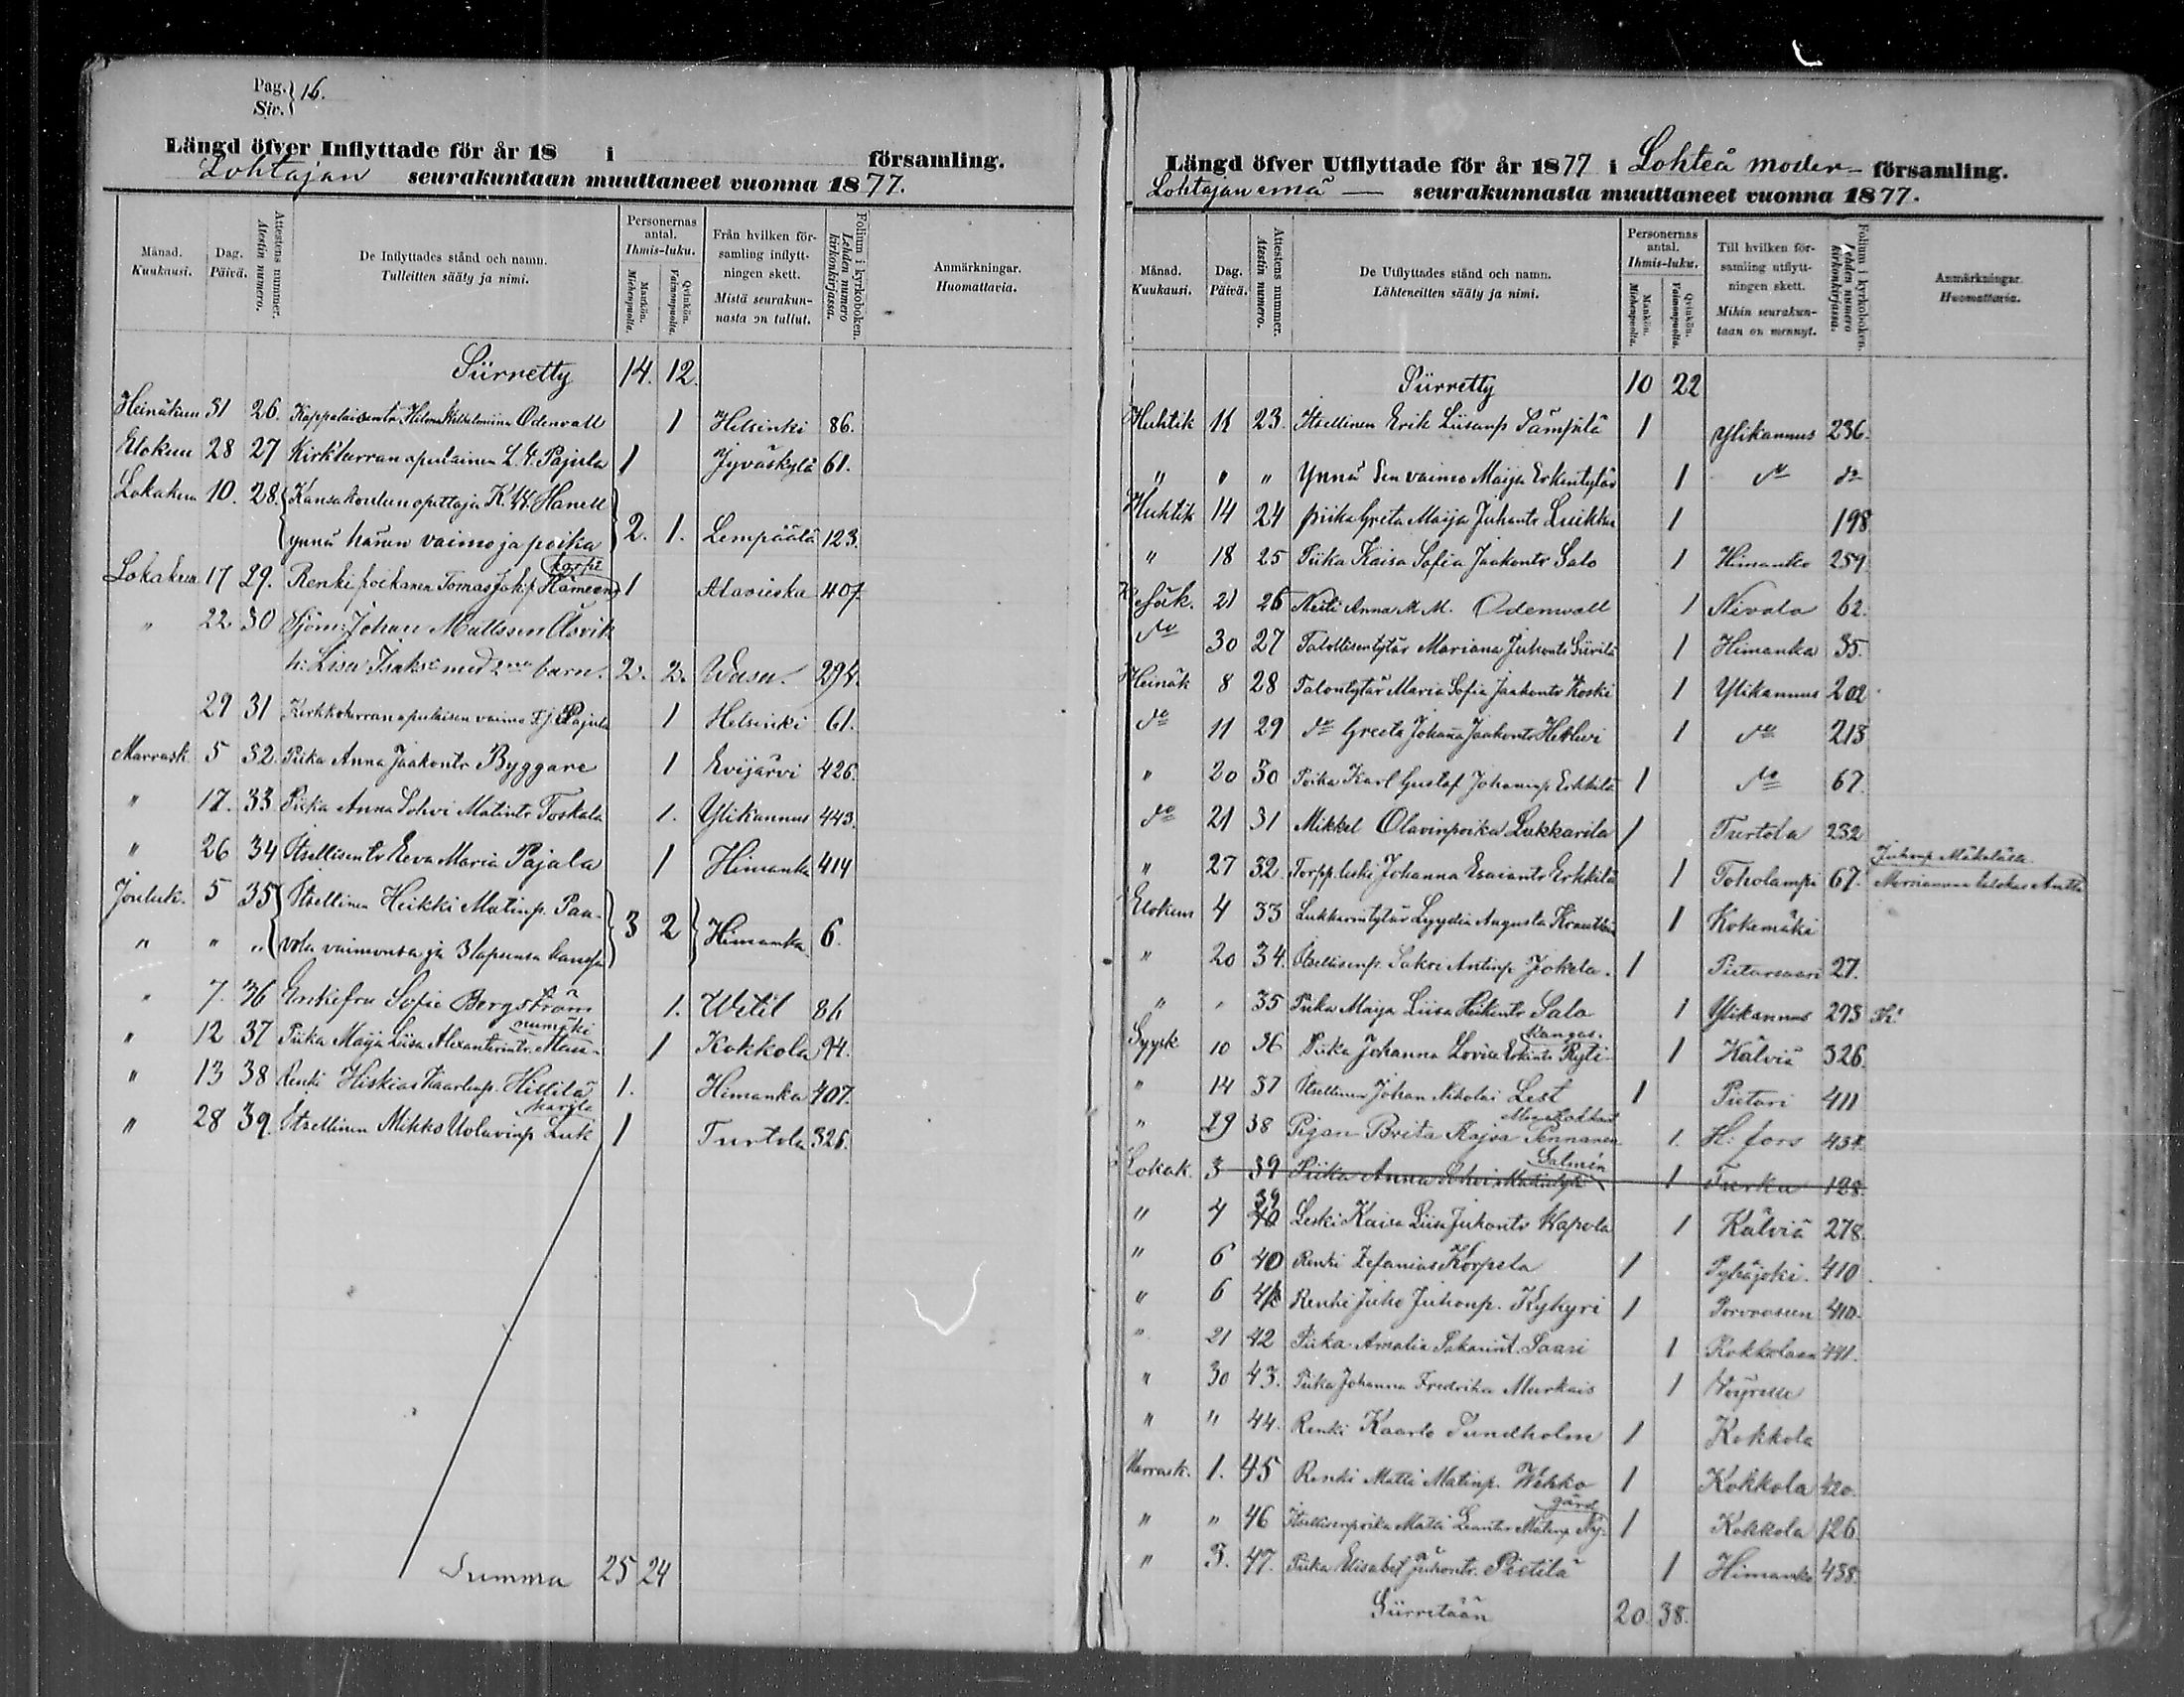 Pag. 16.
Siv.
Längd öfver Inflyttade för år 18 i församling.
Lohtajan seurakuntaan muuttaneet vuonna 1877.
Månad. Kuukausi. Dag. Päivä. Attestens nummer. Atestin numero. De Inflyttades stånd och namn. Tulleitten sääty ja nimi. Personernas antal. Ihmis-luku. Mankön. Miehenpuolta. Qvinkön. Vaimonpuolta. Från hvilken församling inflyttningen skett. Mistä seurakunnasta on tullut. Folium i kyrkoboken. Lehden numero kirkonkirjassa. Anmärkningar. Huomattavia.
Siirretty 14. 12.
Heinäkuu 31 26. Kappalaisentr Helena Wilhelmiina Odenvall 1 Helsinki 86.
Elokuu 28 27 Kirkherran apulainen L. F. Pajula 1 Jyväskylä 61.
Lokakuu 10. 28. Kansakoulunopettaja K. W. Hanell
ynnä hänen vaimo ja poika 2. 1. Lempäälä 123.
korpi
Lokakuu 17 29. Renki poikanen Tomas Jak.p. Hämeen 1 Alavieska 407.
" 22 30 Sjöm: Johan Mattsson Åsvik
h: Lisa Isaks: med 2ne barn. 2. 2. Wasa. 294.
29 31 Kirkkoherran apulaisen vaimo Pajula 1 Helsinki 61.
Marrask 5 32. Piika Anna Jaakontr Byggare 1 Evijärvi 426.
" 17. 33. Piika Anna Sohvi Matintr Toskala 1. Ylikannus 443.
" 26 34 Itsellisentr Eeva Maria Pajala 1 Himanka 414
Jouluk. 5 35 Itsellinen Heikki Matinp. Paa-
" " " vola vaimonsa ja 3 lapsensa kanssa 3 2 Himanka 6.
" 7. 36 Enkefru Sofie Bergström 1. Wetil 86
numäki
" 12 37 Piika Maija Liisa Alexanterintr. Hau- 1 Kokkola 94.
" 13 38 Renki Hiskias Kaarlenp. Hillilä 1. Himanka 407.
karila
" 28 39. Itsellinen Mikko Uolavinp Luk 1 Turtola 326.
Summa 25 24
Längd öfver Utflyttade för år 1877 i Lohteå moder- församling.
Lohtajan emä — seurakunnasta muuttaneet vuonna 1877.
Månad. Kuukausi. Dag. Päivä. Attestens nummer. Atestin numero. De Utflyttades stånd och namn. Lähteneitten sääty ja nimi. Personernas antal. Ihmis-luku. Mankön. Miehenpuolta. Qvinkön. Vaimonpuolta. Till hvilken församling utflyttningen skett. Mihin seurakuntaan on mennyt. Folium i kyrkoboken. Lehden numero kirkonkirjassa. Anmärkningar. Huomattavia.
Siirretty 10 22
Huhtik 11 23. Itsellinen Erik Liisanp Sämpilä 1 Ylikannus 236.
" " " Ynnä Sen vaimo Maija Erkintytär 1 do do
Huhtik 14 24 piika Greta Maija Juhontr Luikku 1 198
" 18 25 Piika Kaisa Sofia Jaakontr Salo 1 Himanko 259.
Kesäk. 21 26 Neiti Anna M. M. Odenwall 1 Nivala 62.
do 30 27 Talollisentytär Mariana Juhontr Siirilä 1 Himanka 35.
Heinäk 8 28 Talontytär Maria Sofia Jaakontr Koski 1 Ylikannus 202
do 11 29 do Greeta Johana Jaakontr 1 do 213
" 20 30 Poika Karl Gustaf Johaninp Erkkilä 1 do 67.
do 21 31 Mikkel Olavinpoika Lukkarila 1 Turtola 232
" 27 32. Torpp. leski Johanna Esaiantr Erkkilä 1 Toholampi 67.
Elokuu 4 33 Lukkarintytär Lyydia Augusta 1 Kokemäki
" 20 34. Itsellisenp. Sakri Antinp Jokela. 1 Pietarsaari 27.
" " 35 Piika Maija Liisa Heikintr Salo 1 Ylikannus 293
Kangas.
Syysk 10 36 Piika Johanna Lovisa Erkintr Ryti- 1 Kälviä 326.
" 14 37 Itsellinen Johan Nikolai Lest 1 Pietari 411
" 29 38 Pigan Brita Kajsa Pennanen 1. H:fors 434.
Salmén
Lokak. 3 39 Piika Anna Sohvi Matintytr 1 Turku 128.
39
" 4 40 Leski Kaisa Liisa Juhontr Wapola 1 Kälviä 278.
" 6 40 Renki Zefanias Korpela 1 Pyhäjoki. 410.
" 6 41 Renki Juho Juhonp. Kykyri 1 Porvooseen 410.
" 21 42 Piika Amalia Sakarint. Saari 1 Kokkolaan 441.
" 30 43. Piika Johanna Fredrika Murkais 1 Vöyrille
" " 44. Renki Kaarlo Sundholm 1 Kokkola
Marrask. 1. 45 Renki Matti Matinp. Wehko 1 Kokkola 420.
gård
" " 46 Itsellisenpoika Matti Leander Matinp Ny- 1 Kokkola 126.
" 3. 47. Piika Elisabet Juhontr. Pietilä 1 Himanko 438.
Siirretään 20. 38.